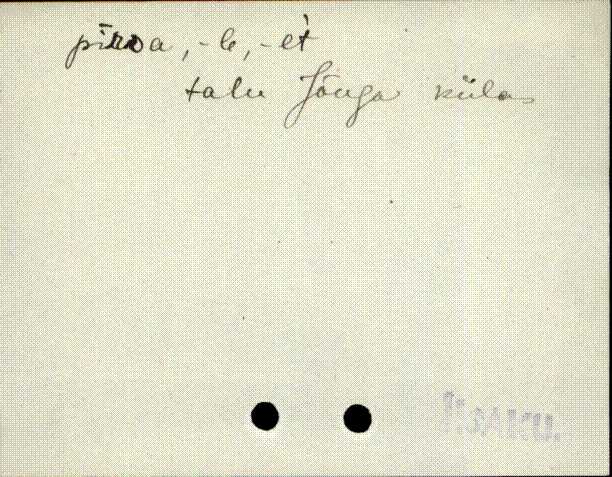 pīrra, -le, -et̀
talu Jõuga külas
Iisaku.